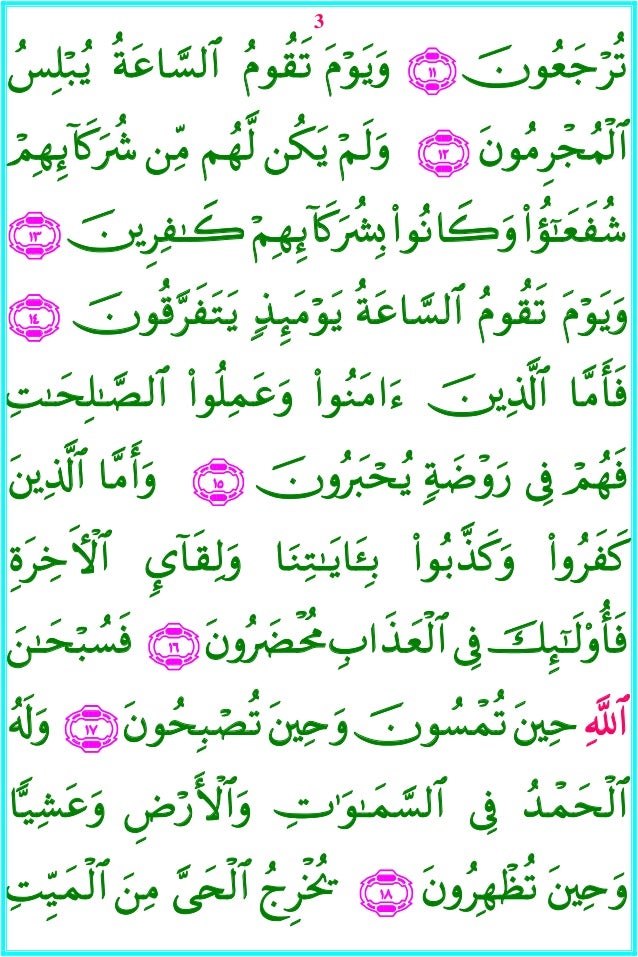 3
تُرْجَعُونَ ١١ وَيَوْمَ تَقُومُ ٱلسَّاعَةُ يُبْلِسُ
ٱلْمُجْرِمُونَ ١٢ وَلَمْ يَكُن لَّهُم مِّن شُرَكَآئِهِمْ
شُفَعَـٰٓؤُا۟ وَكَانُوا۟ بِشُرَكَآئِهِمْ كَـٰفِرِينَ ١٣
وَيَوْمَ تَقُومُ ٱلسَّاعَةُ يَوْمَئِذٍ يَتَفَرَّقُونَ ١٤
فَأَمَّا ٱلَّذِينَ ءَامَنُوا۟ وَعَمِلُوا۟ ٱلصَّـٰلِحَـٰتِ
فَهُمْ فِى رَوْضَةٍ يُحْبَرُونَ ١٥ وَأَمَّا ٱلَّذِينَ
كَفَرُوا۟ وَكَذَّبُوا۟ بِـَٔايَـٰتِنَا وَلِقَآئِ ٱلْـَٔاخِرَةِ
فَأُو۟لَـٰٓئِكَ فِى ٱلْعَذَابِ مُحْضَرُونَ ١٦ فَسُبْحَـٰنَ
ٱللَّهِ حِينَ تُمْسُونَ وَحِينَ تُصْبِحُونَ ١٧ وَلَهُ
ٱلْحَمْدُ فِى ٱلسَّمَـٰوَٰتِ وَٱلْأَرْضِ وَعَشِيًّا
وَحِينَ تُظْهِرُونَ ١٨ يُخْرِجُ ٱلْحَىَّ مِنَ ٱلْمَيِّتِ